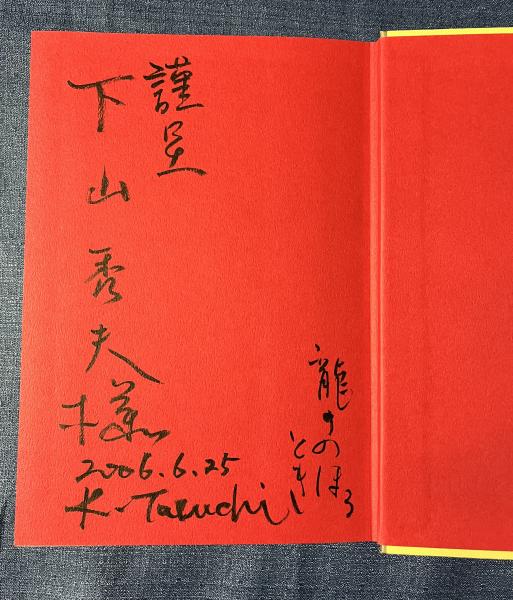 謹呈
下山秀夫様
2006.6.25
K. Taguchi
龍の
のぼる
とき